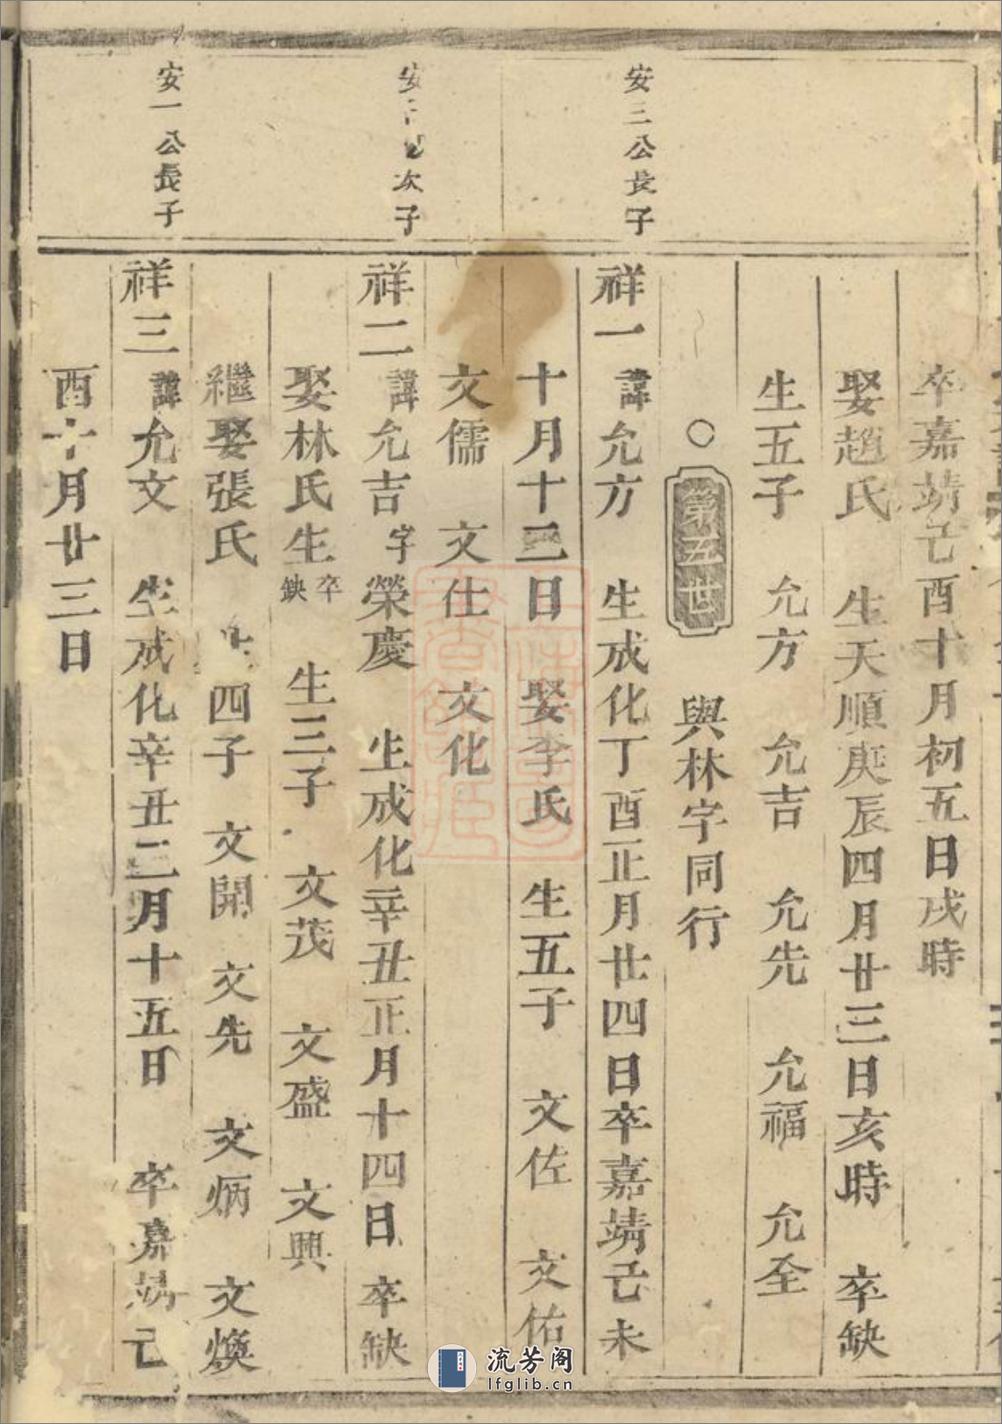 卒嘉靖己酉十月初五日戌時
娶趙氏 生天順庚辰四月廿三日亥時 卒缺
生五子 允方 允吉 允先 允福 允全
○ 第五世 與林字同行
安三公長子
祥一 諱允方 生成化丁酉正月廿四日卒嘉靖己未
十月十三日 娶李氏 生五子 文佐 文佑
文儒 文仕 文化
次子
祥二 諱允吉 字榮慶 生成化辛丑正月十四日 卒缺
娶林氏生卒缺 生三子 文茂 文盛 文興
繼娶張氏 四子 文開 文先 文炳 文煥
安一公長子
祥三 諱允文 生成化辛丑二月十五日 卒嘉靖己
酉十月廿三日
流芳阁
lfglib.cn